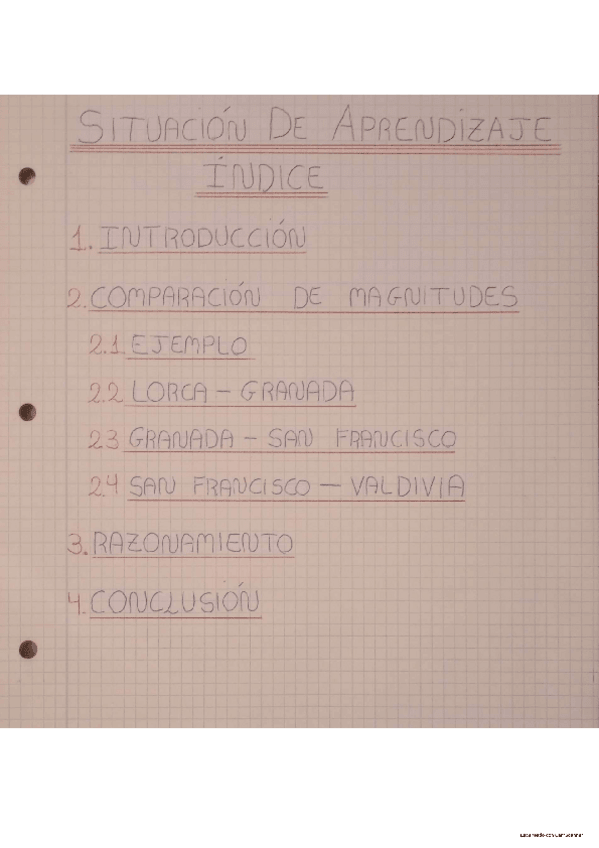 SITUACIÓN DE APRENDIZAJE
ÍNDICE
1. INTRODUCCIÓN
2. COMPARACIÓN DE MAGNITUDES
2.1 EJEMPLO
2.2 LORCA - GRANADA
23 GRANADA - SAN FRANCISCO
2.4 SAN FRANCISCO - VALDIVIA
3. RAZONAMIENTO
4. CONCLUSIÓN